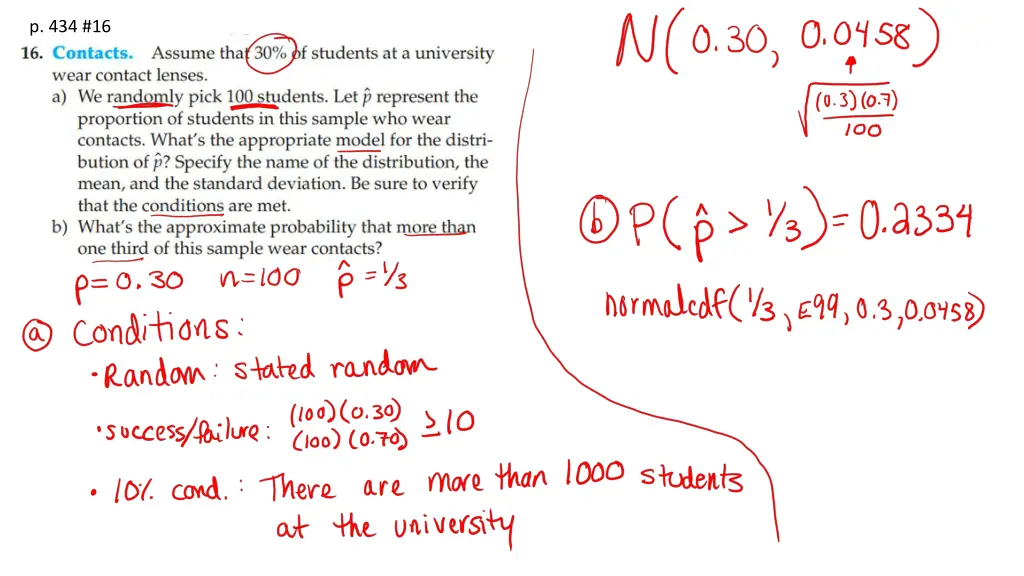 p. 434 #16
16. Contacts. Assume that 30% of students at a university
wear contact lenses.
a) We randomly pick 100 students. Let p̂ represent the
proportion of students in this sample who wear
contacts. What's the appropriate model for the distri-
bution of p̂? Specify the name of the distribution, the
mean, and the standard deviation. Be sure to verify
that the conditions are met.
b) What's the approximate probability that more than
one third of this sample wear contacts?
p=0.30 n=100 p̂=1/3
(a) Conditions:
• Random: stated random
• success/failure: (100)(0.30)
(100)(0.70) ≥10
• 10% cond.: There are more than 1000 students
at the university
N(0.30, 0.0458)
√((0.3)(0.7)
100)
(b) P(p̂ > 1/3) = 0.2334
normalcdf(1/3, E99, 0.3, 0.0458)